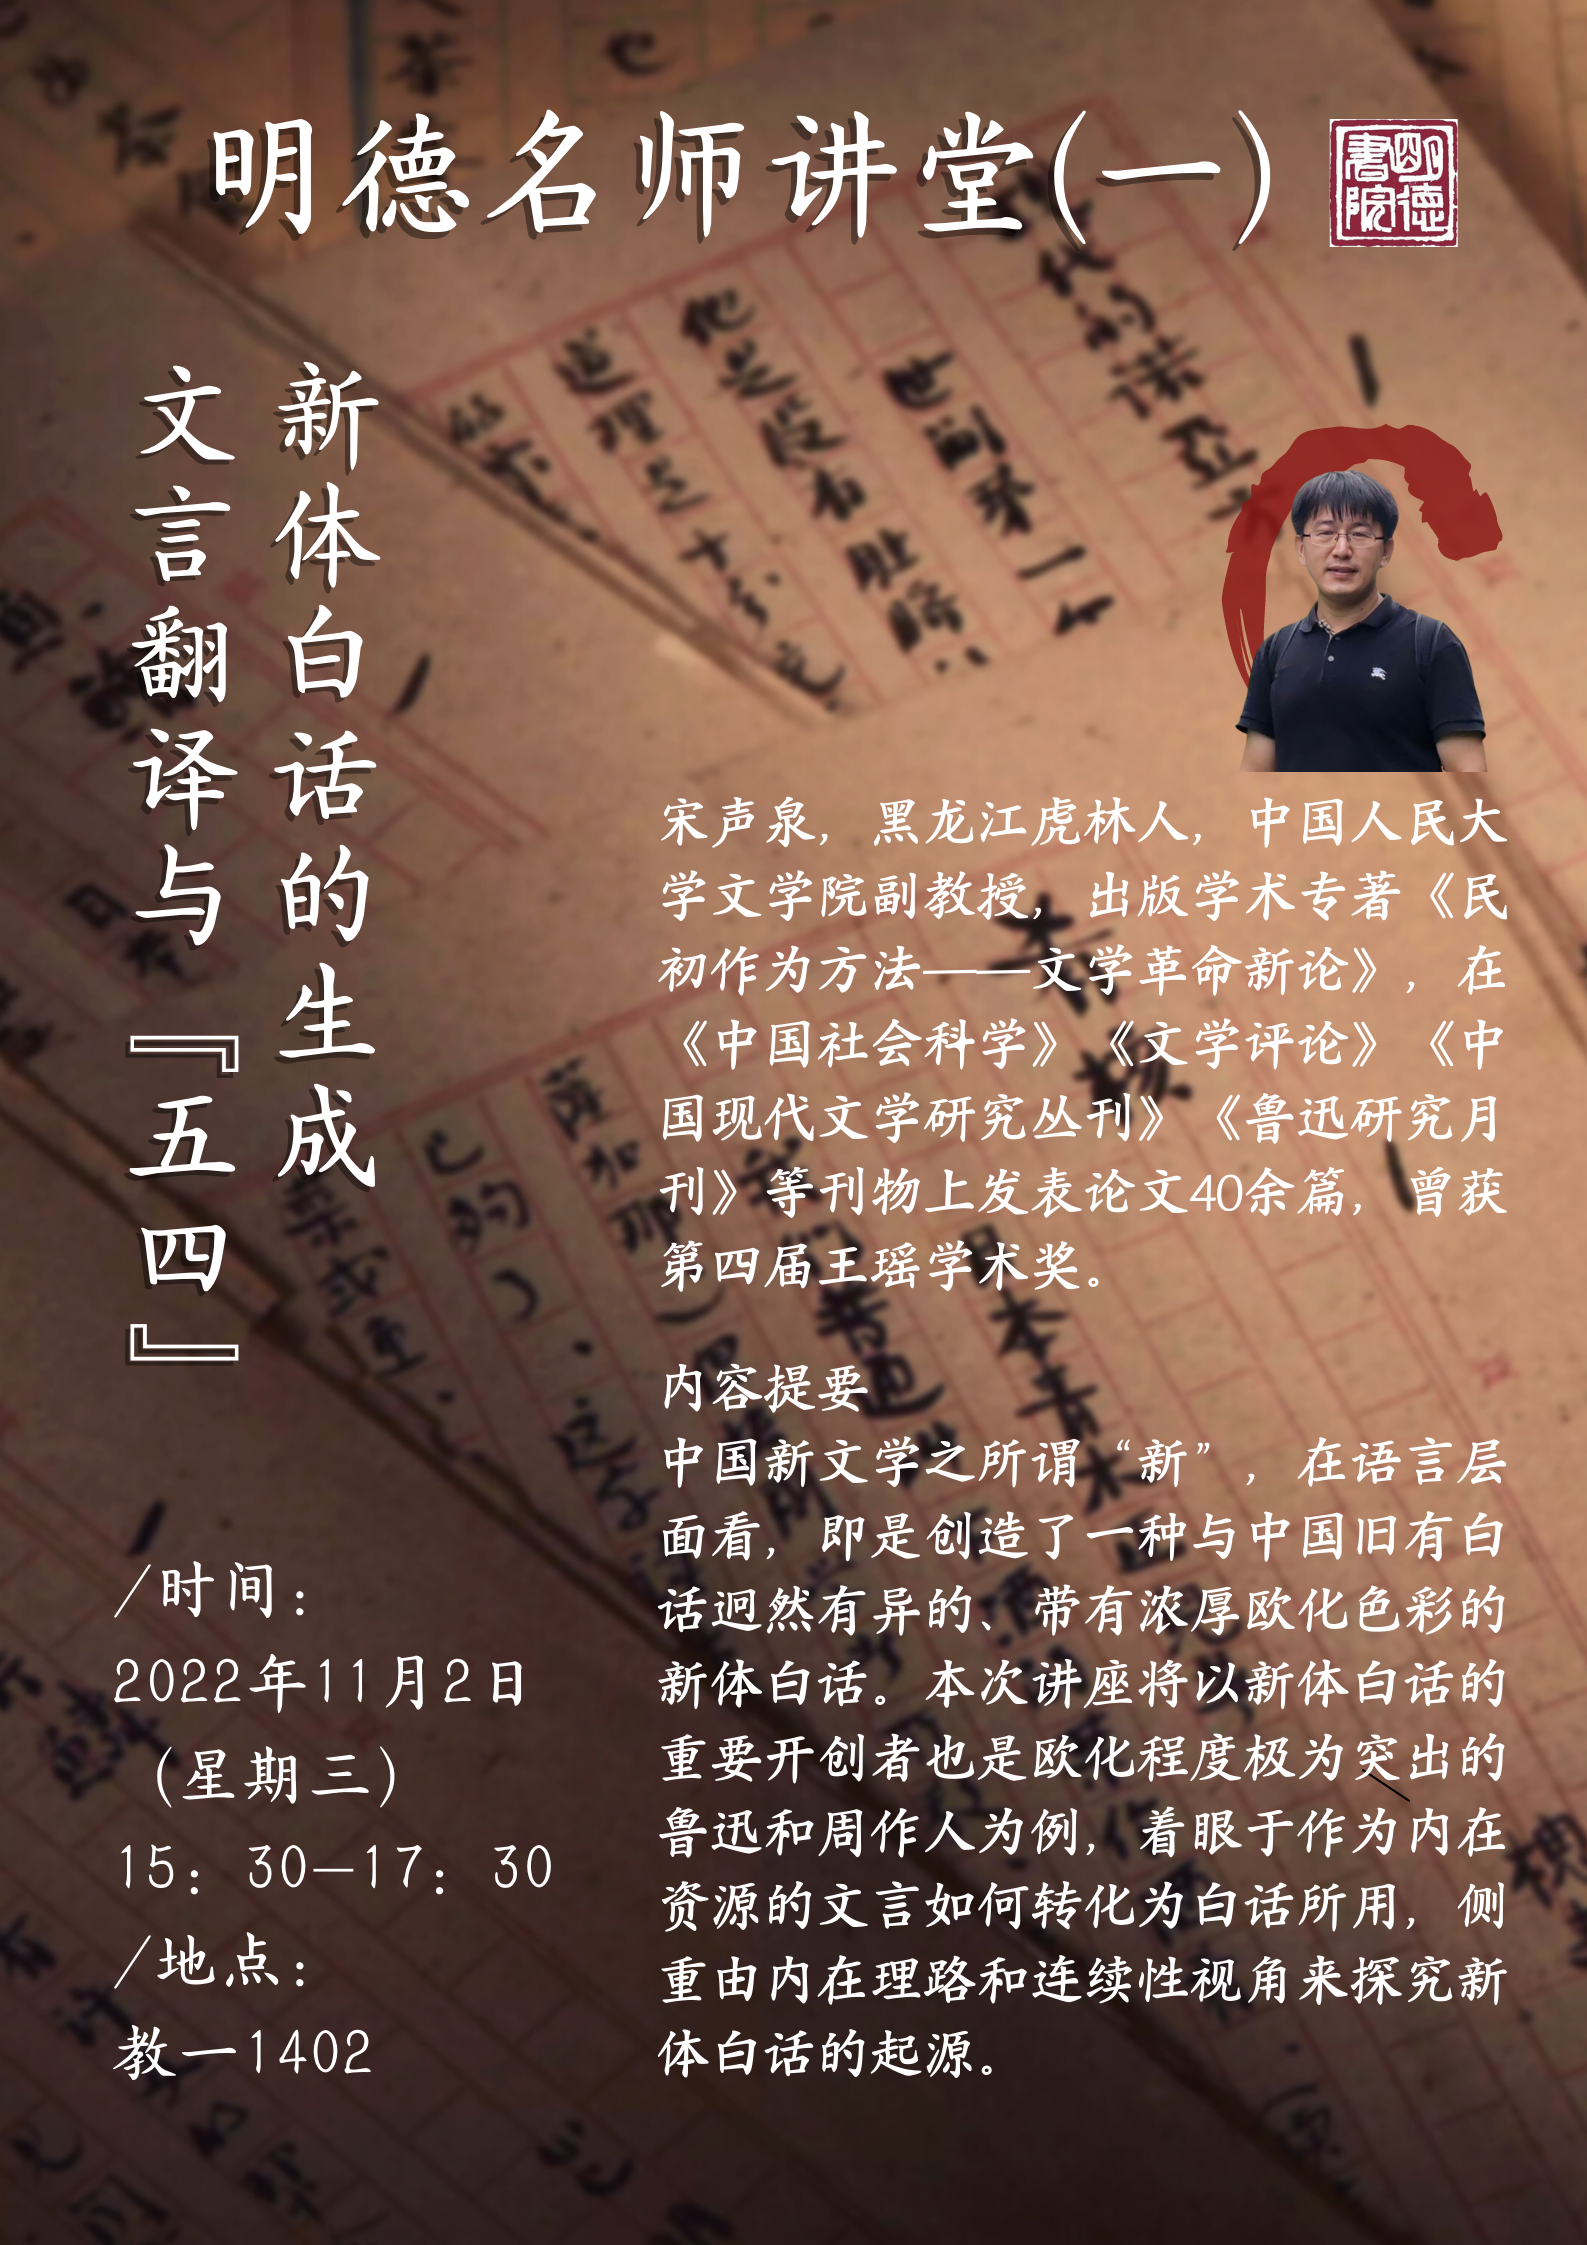 明德名师讲堂(一)
明德
書院
文言翻译与『五四』
新体白话的生成
宋声泉，黑龙江虎林人，中国人民大
学文学院副教授，出版学术专著《民
初作为方法——文学革命新论》，在
《中国社会科学》《文学评论》《中
国现代文学研究丛刊》《鲁迅研究月
刊》等刊物上发表论文40余篇，曾获
第四届王瑶学术奖。
内容提要
中国新文学之所谓“新”，在语言层
面看，即是创造了一种与中国旧有白
话迥然有异的、带有浓厚欧化色彩的
新体白话。本次讲座将以新体白话的
重要开创者也是欧化程度极为突出的
鲁迅和周作人为例，着眼于作为内在
资源的文言如何转化为白话所用，侧
重由内在理路和连续性视角来探究新
体白话的起源。
/时间：
2022年11月2日
（星期三）
15：30—17：30
/地点：
教一1402